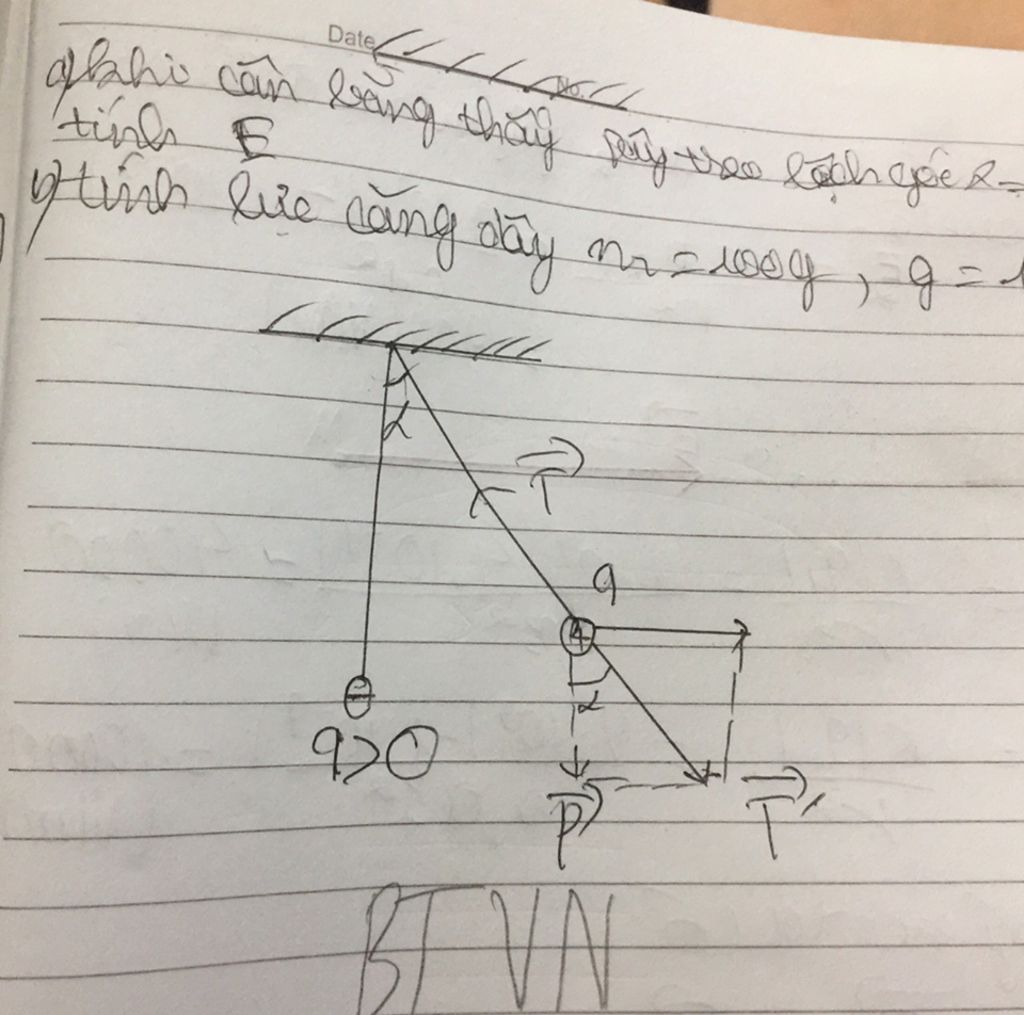 Date
No.
a) khi cân bằng thấy dây treo lệch góc α =
tính E
b) tính lực căng dây m = 100g, g = 1
α
T
q
α
q>0
P
T'
BTVN